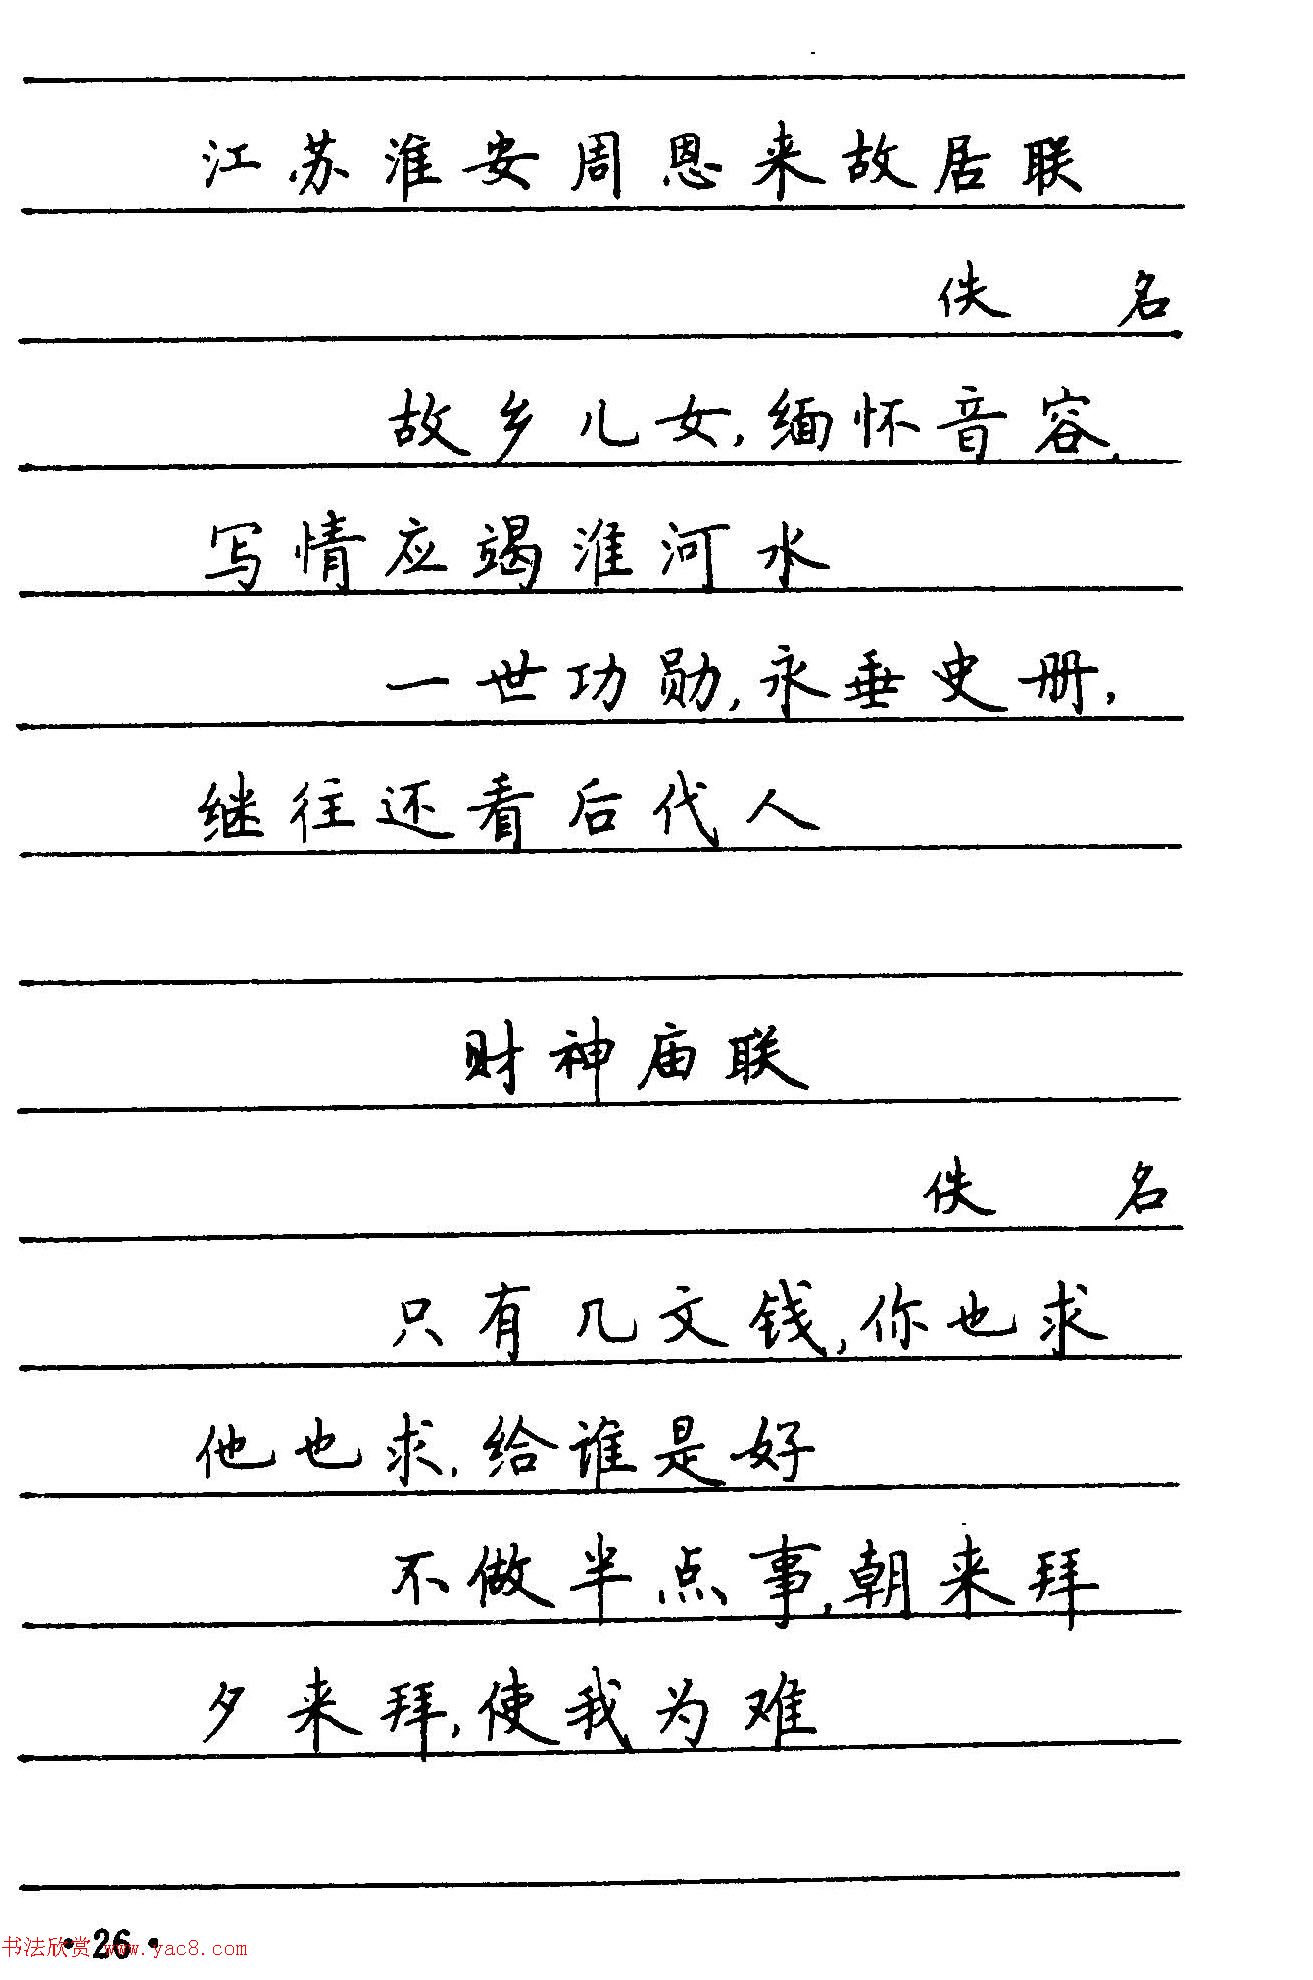 江苏淮安周恩来故居联
佚 名
故乡儿女,缅怀音容,
写情应竭淮河水
一世功勋,永垂史册,
继往还看后代人
财神庙联
佚 名
只有几文钱,你也求
他也求,给谁是好
不做半点事,朝来拜
夕来拜,使我为难
·26·
书法欣赏 www.yac8.com